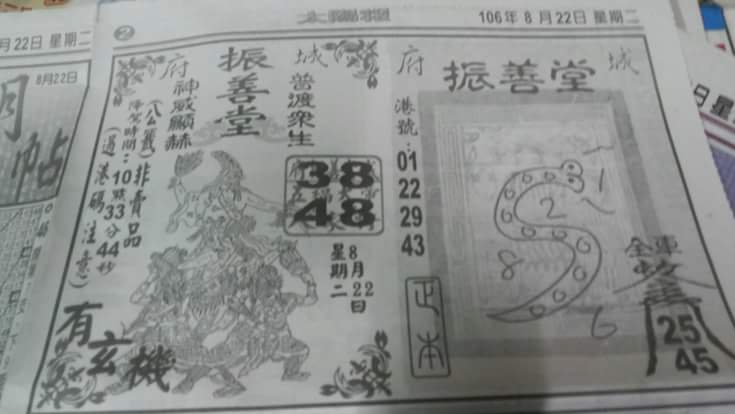 月22日 星期二
② 太陽報 106年8月22日 星期二
8月22日
帖
府 振善堂 城
神威顯赫
普渡眾生
(八公籤)非賣品
降駕時間:10點33分44秒
(過港碼注意)
38
48
8月22日
星期二
有玄機
府 振善堂 城
港號:
01
22
29
43
正本
1
2
8
6
25
45
日星